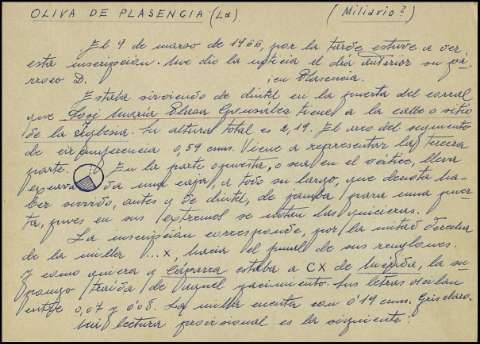 OLIVA DE PLASENCIA (La) (Miliario?)
El 9 de marzo de 1966, por la tarde, estuve a ver
esta inscripción. Me dio la noticia el día anterior su pá-
rroco D. en Plasencia.
Estaba sirviendo de dintel en la puerta del corral
que José María Elena González tiene a la calle o sitio
de la iglesia. Su altura total es 2,19. El arco del segmento
de circunferencia 0,59 cms. Viene a representar la tercera
parte. En la parte opuesta, o sea en el vértice, lleva
excava da una caja, a todo su largo, que denota ha-
ber servido, antes de dintel, de jamba para una puer-
ta, pues en sus extremos se notan las quicieras.
La inscripción corresponde, por la mitad derecha
de la milla ...X, hacia el final de sus renglones.
Y como quiera y Cáparra estaba a CX de la
pongo traída de aquel yacimiento. Sus letras oscilan
entre 0,07 y 0'08. La milla cuenta con 0'19 cms.
Mi lectura provisional es la siguiente: